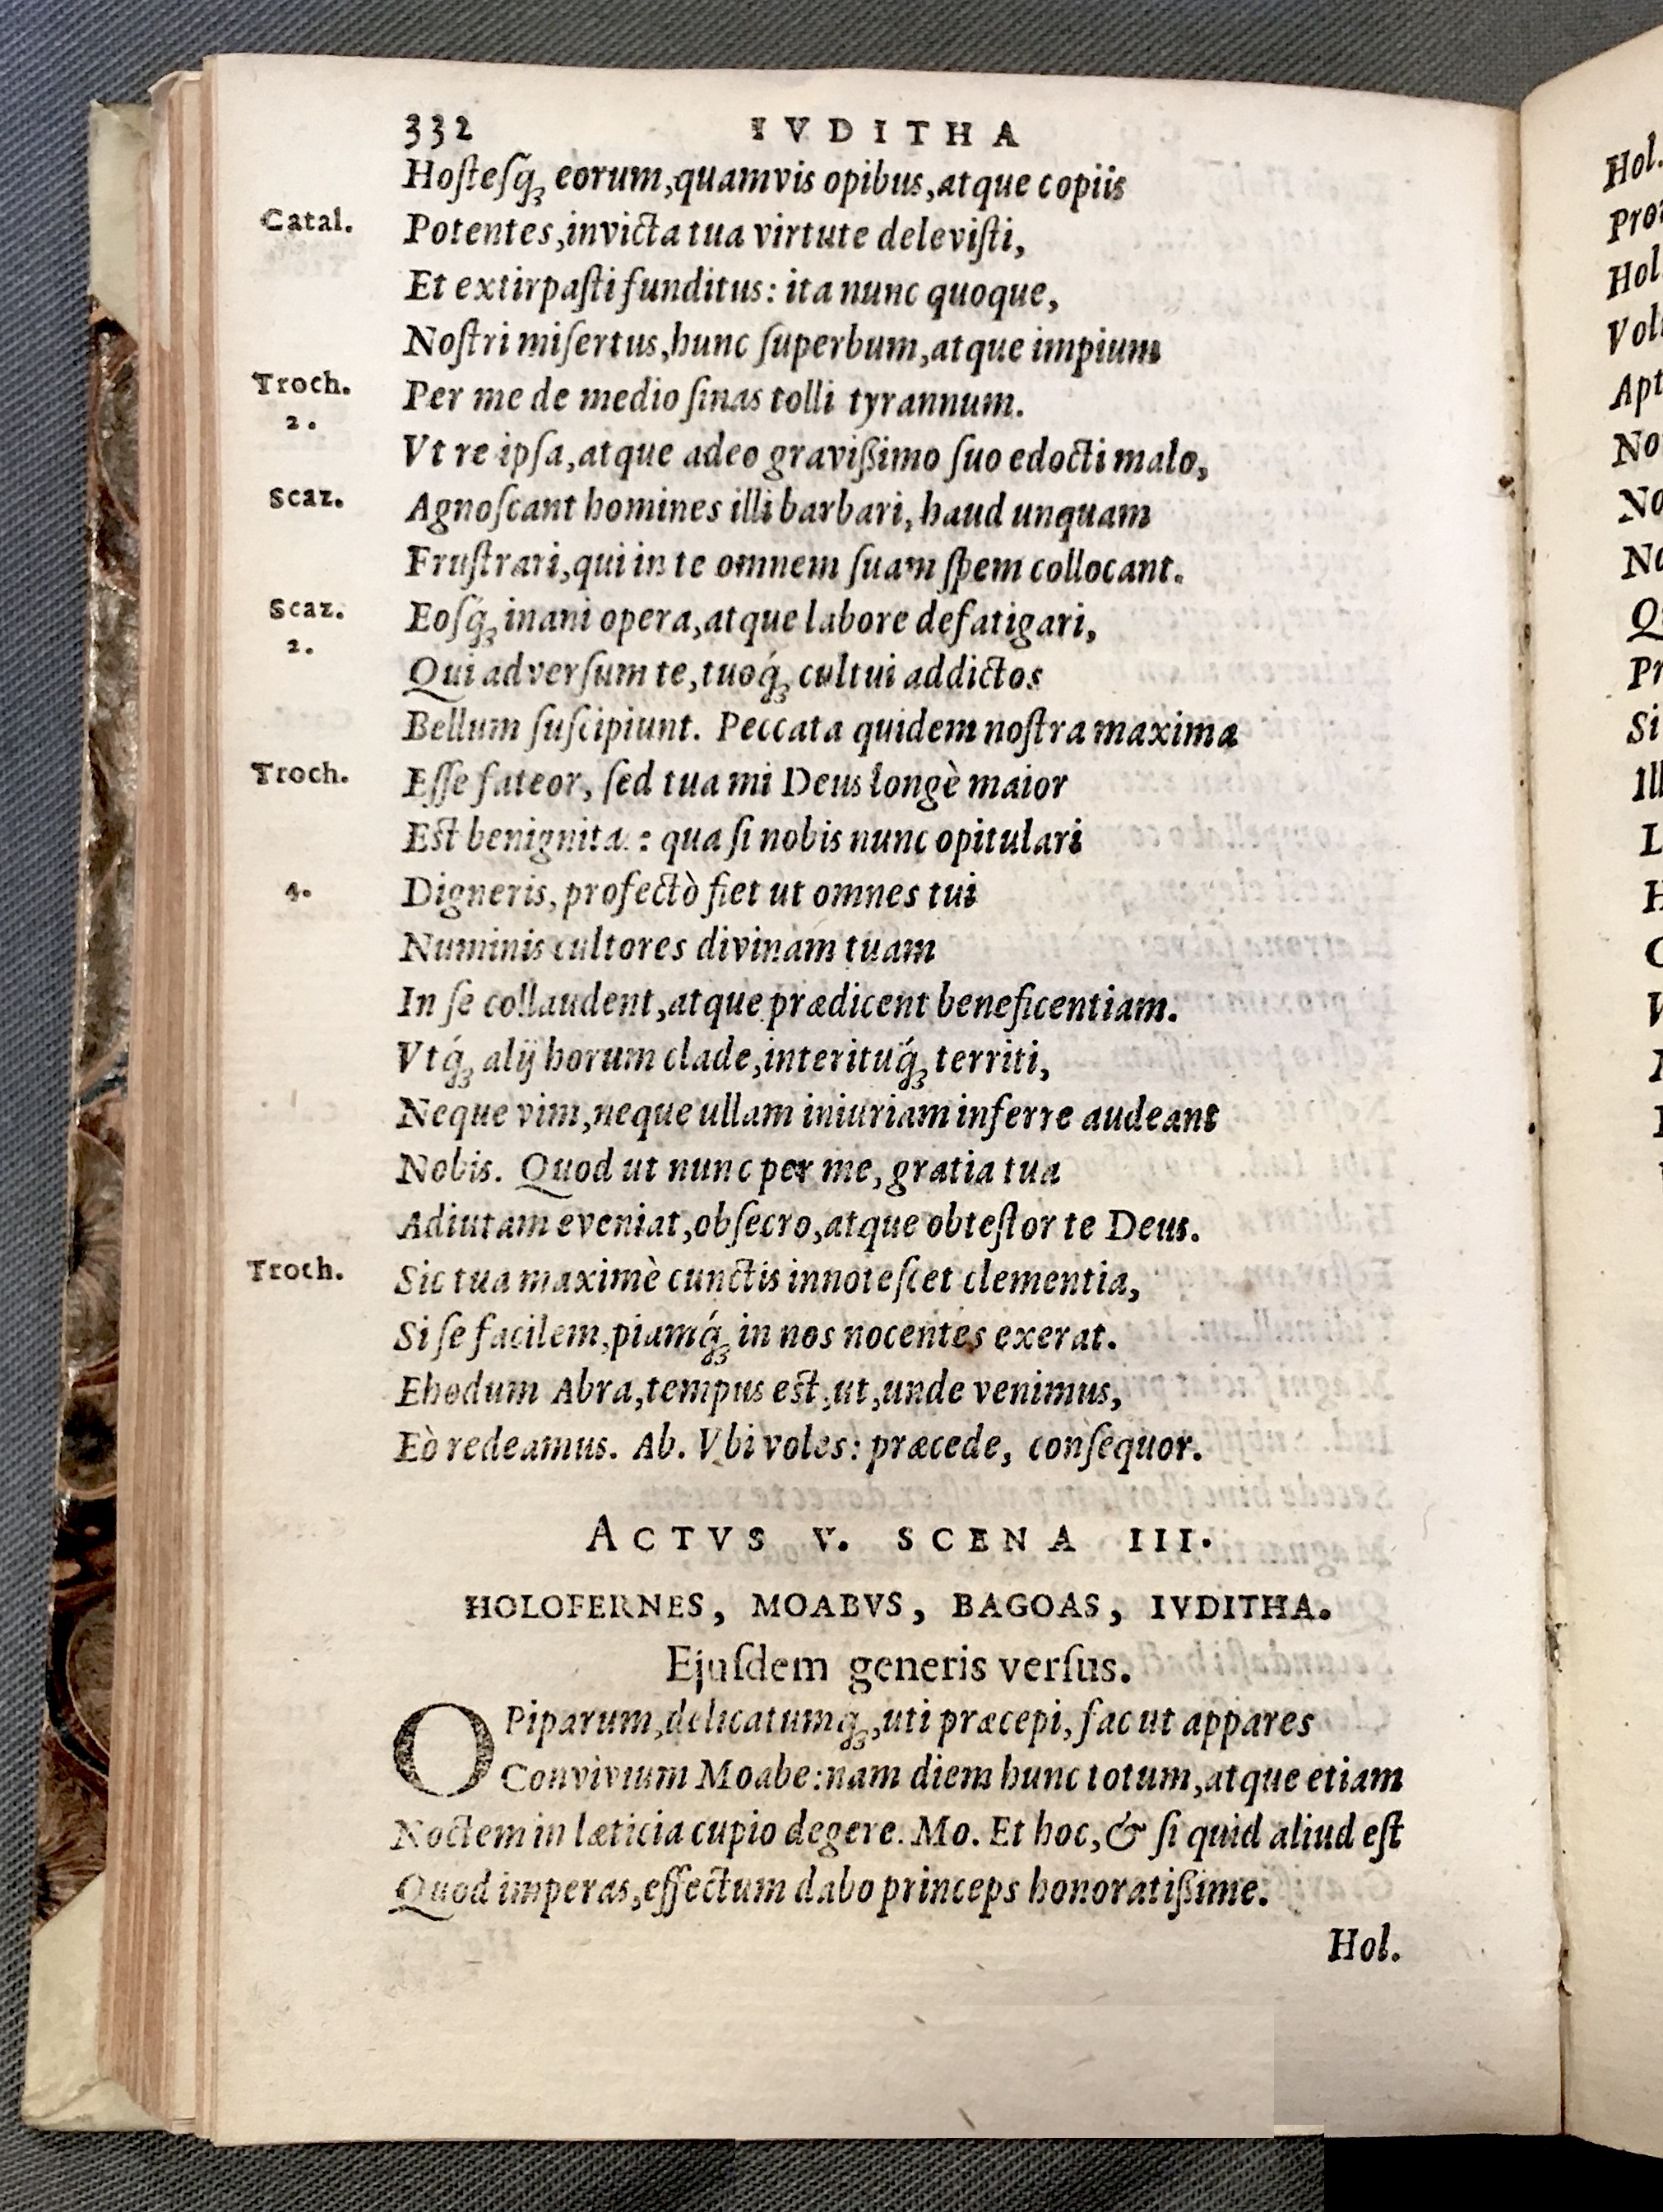 332 IVDITHA
Hoſteſq́ʒ eorum,quamvis opibus,atque copiis
Catal. Potentes,invicta tua virtute deleviſti,
Et extirpaſti funditus: ita nunc quoque,
Noſtri miſertus,hunc ſuperbum,atque impium
Troch. Per me de medio ſinas tolli tyrannum.
2.
Vt re ipſa,atque adeo gravißimo ſuo edocti malo,
Scaz. Agnoſcant homines illi barbari, haud unquam
Fruſtrari,qui in te omnem ſuam ſpem collocant.
Scaz. Eoſq́ʒ inani opera,atque labore defatigari,
2.
Qui adverſum te,tuoq́ʒ cultui addictos
Bellum ſuſcipiunt. Peccata quidem noſtra maxima
Troch. Eſſe fateor, ſed tua mi Deus longè maior
Est benignita : qua ſi nobis nunc opitulari
4. Digneris, profectò fiet ut omnes tui
Numinis cultores divinam tuam
In ſe collaudent,atque prædicent beneficentiam.
Vtq́ʒ alij horum clade,interituq́ʒ territi,
Neque vim,neque ullam iniuriam inferre audeant
Nobis. Quod ut nunc per me, gratia tua
Adiutam eveniat,obſecro,atque obteſtor te Deus.
Troch. Sic tua maximè cunctis innoteſcet clementia,
Si ſe facilem,piamq́ʒ in nos nocentes exerat.
Ehodum Abra,tempus est,ut,unde venimus,
Eò redeamus. Ab. Vbi voles: præcede, conſequor.
ACTVS V. SCENA III.
HOLOFERNES, MOABVS, BAGOAS, IVDITHA.
Ejuſdem generis verſus.
OPiparum,delicatumq́ʒ,uti præcepi, fac ut appares
Convivium Moabe:nam diem hunc totum,atque etiam
Noctem in læticia cupio degere. Mo. Et hoc,& ſi quid aliud eſt
Quod imperas,effectum dabo princeps honoratißime.
Hol.
Hol.
Hol
Apt
No
No
Si
Ill